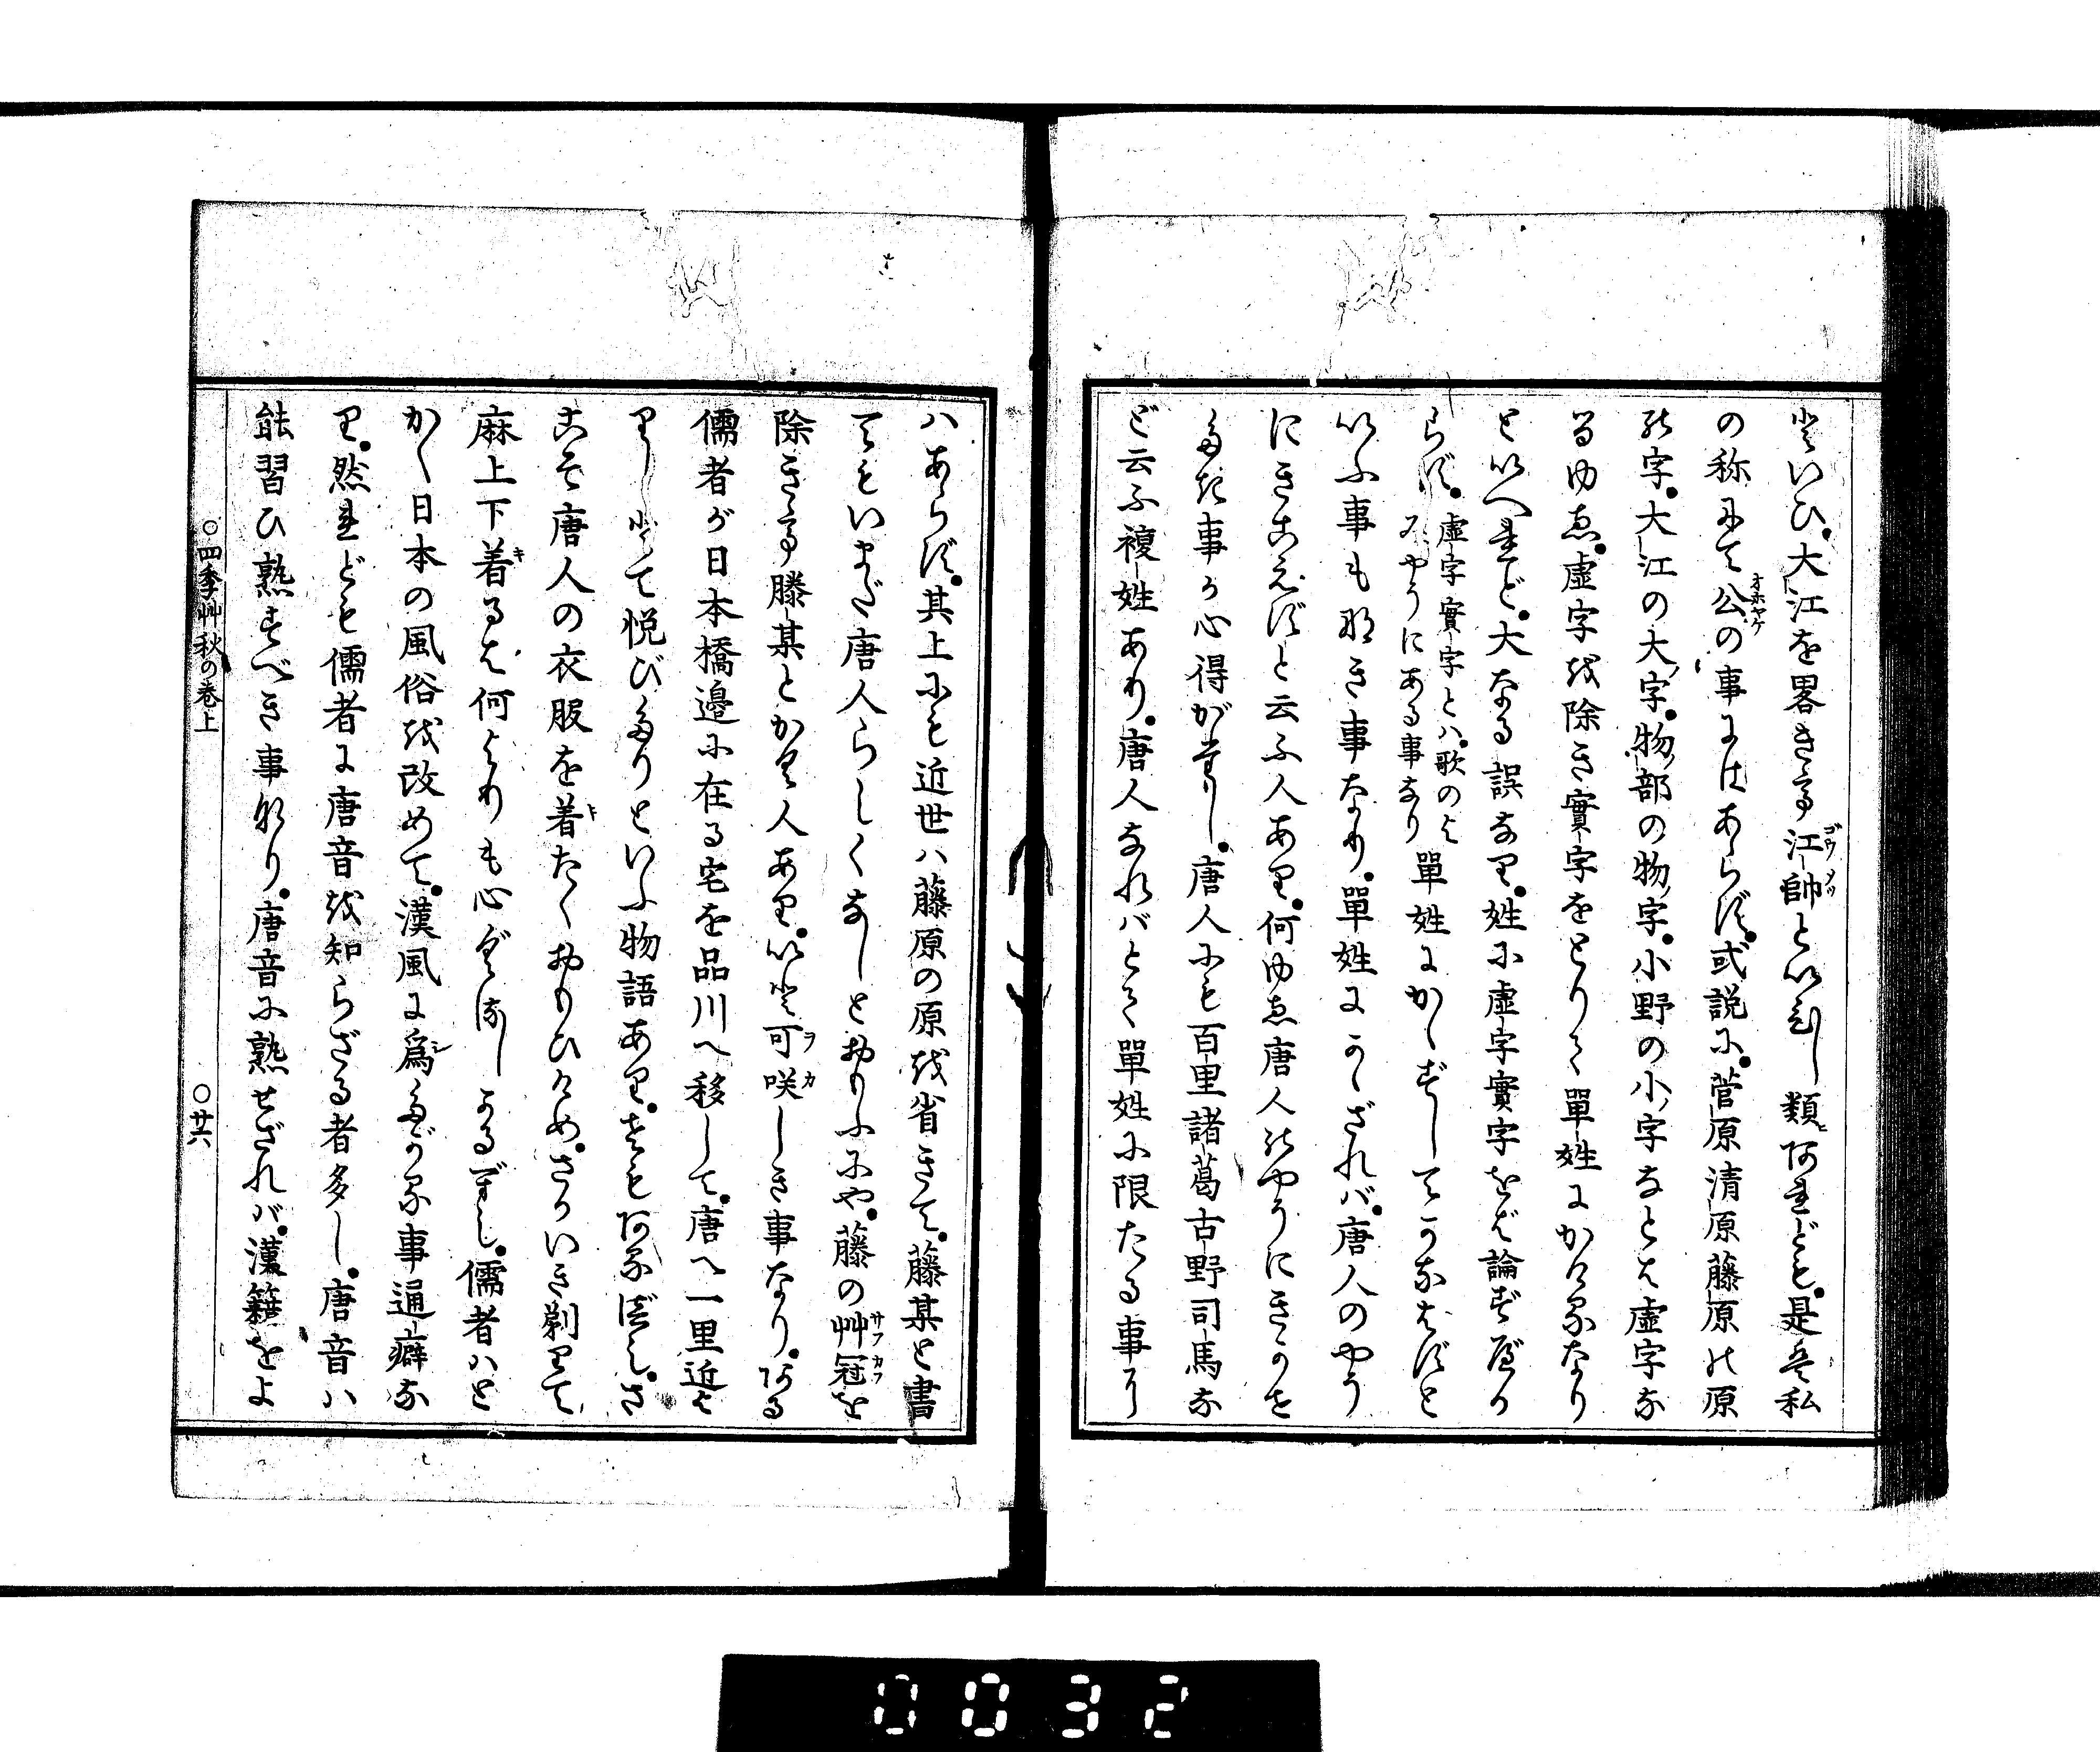 といひ。大江を畧きて江帥といひし類あれども。是も私
の称にて公の事にはあらず。或説に。菅原清原藤原の原
の字。大江の大字。物部の物字。小野の小字などは虚字な
るゆゑ。虚字を除き實字をとりて單姓にかけるなり
といへれど。大なる誤なり。姓に虚字實字をば論ずべか
らず。
虚字實字とハ。歌のよ
みやうにある事なり
單姓にかゝずしてかなはずと
いふ事も無き事なり。單姓にかゝざれバ。唐人のやう
にきこえずと云ふ人あり。何ゆゑ唐人のやうにきかせ
たき事か心得がたし。唐人にも百里諸葛古野司馬な
ど云ふ複姓あり。唐人なれバとて單姓に限たる事に
ハあらず。其上にも近世ハ藤原の原を省きて。藤某と書
てもいまだ唐人らしくなしとおもふにや。藤の艸冠を
除きて滕某とかく人あり。いと可咲しき事なり。ある
儒者が日本橋邉に在る宅を品川へ移して。唐へ一里近よ
りしとて悦びたりといふ物語あり。是もあるべし。さ
こそ唐人の衣服を着たくおもひけめ。さかいき剃りて
麻上下着るは何よりも心ぐるしかるべし。儒者ハと
かく日本の風俗を改めて。漢風に爲たがる事通癖な
り。然れども儒者に唐音を知らざる者多し。唐音ハ
能習ひ熟すべき事なり。唐音に熟せざれバ。漢籍をよ
○四季艸秋の巻上
○廿六
0032